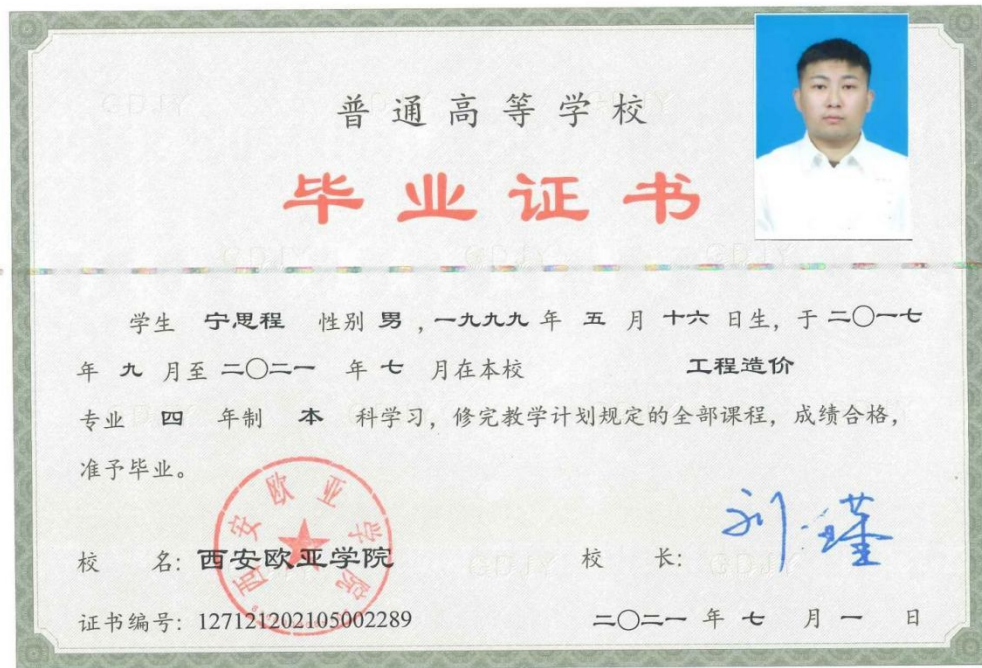 普通高等学校
毕业证书
学生 宁思程 性别 男，一九九九 年 五 月 十六 日生，于 二〇一七
年 九 月至 二〇二一 年 七 月在本校 工程造价
专业 四 年制 本 科学习，修完教学计划规定的全部课程，成绩合格，
准予毕业。
西安欧亚学院
校 名：西安欧亚学院 校 长：刘瑾
证书编号：127121202105002289 二〇二一 年 七 月 一 日